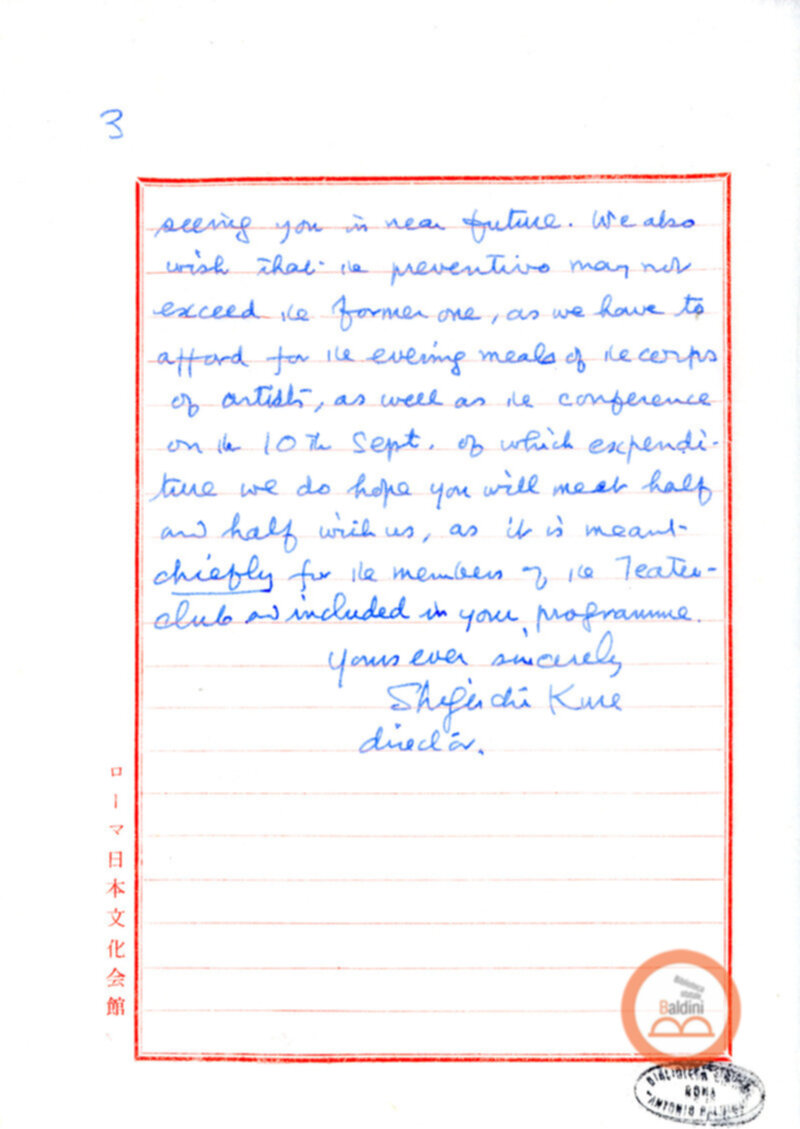 3
seeing you in near future. We also
wish that the preventivo may not
exceed the former one, as we have to
afford for the evening meals of the corps
of artists, as well as the conference
on the 10th Sept. of which expendi-
ture we do hope you will meet half
and half with us, as it is meant
chiefly for the members of the Teater-
club and included in your programme.
Yours ever sincerely
Shigeichi Kure
director.
ローマ日本文化会館
Biblioteca
statale
Baldini
BIBLIOTECA STATALE
ROMA
"ANTONIO BALDINI"